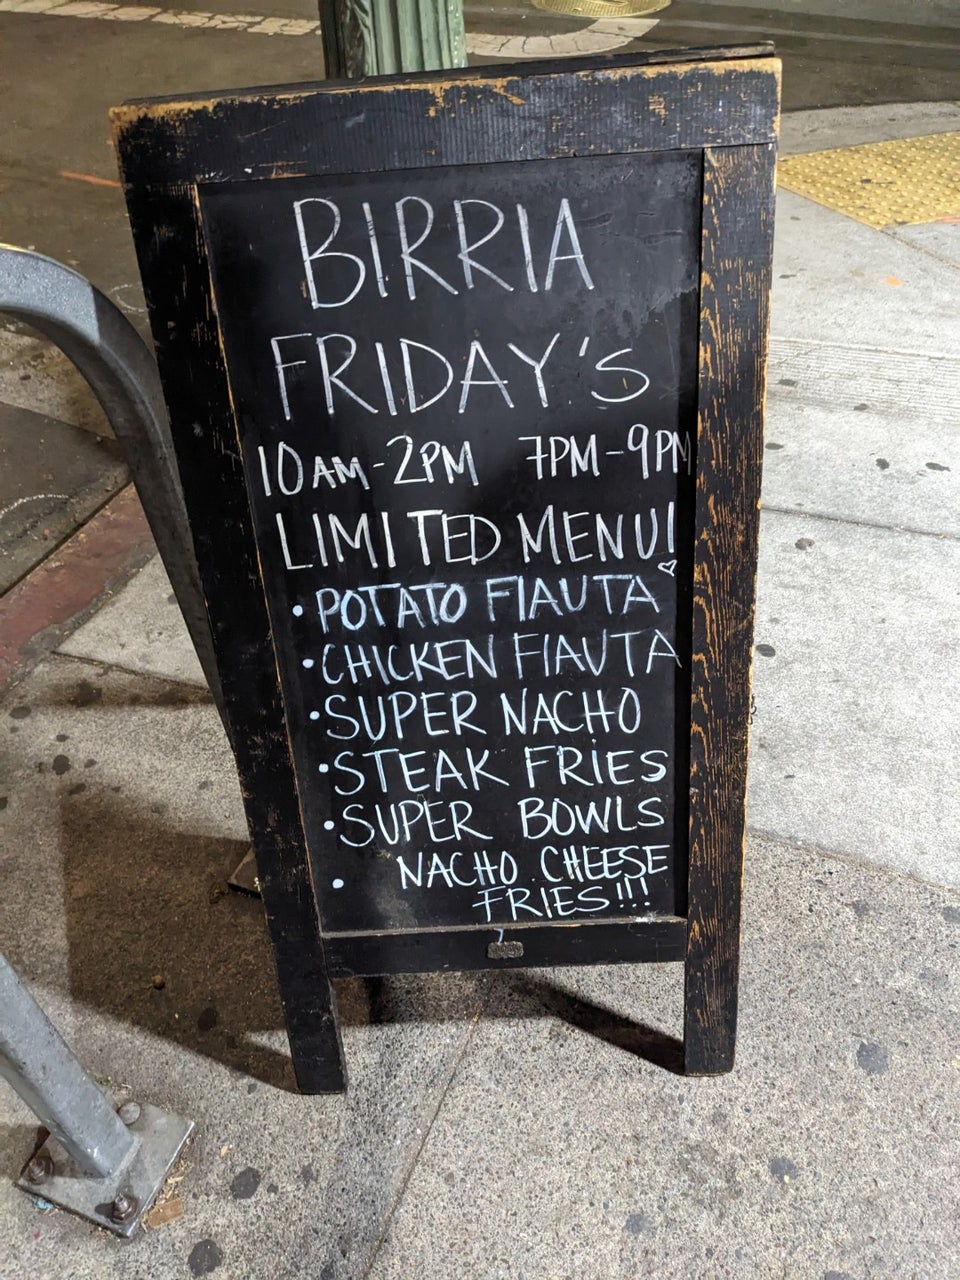 BIRRIA
FRIDAY'S
10AM-2PM 7PM-9PM
LIMITED MENU!
• POTATO FIAUTA
• CHICKEN FIAUTA
• SUPER NACHO
• STEAK FRIES
• SUPER BOWLS
• NACHO CHEESE
FRIES!!!